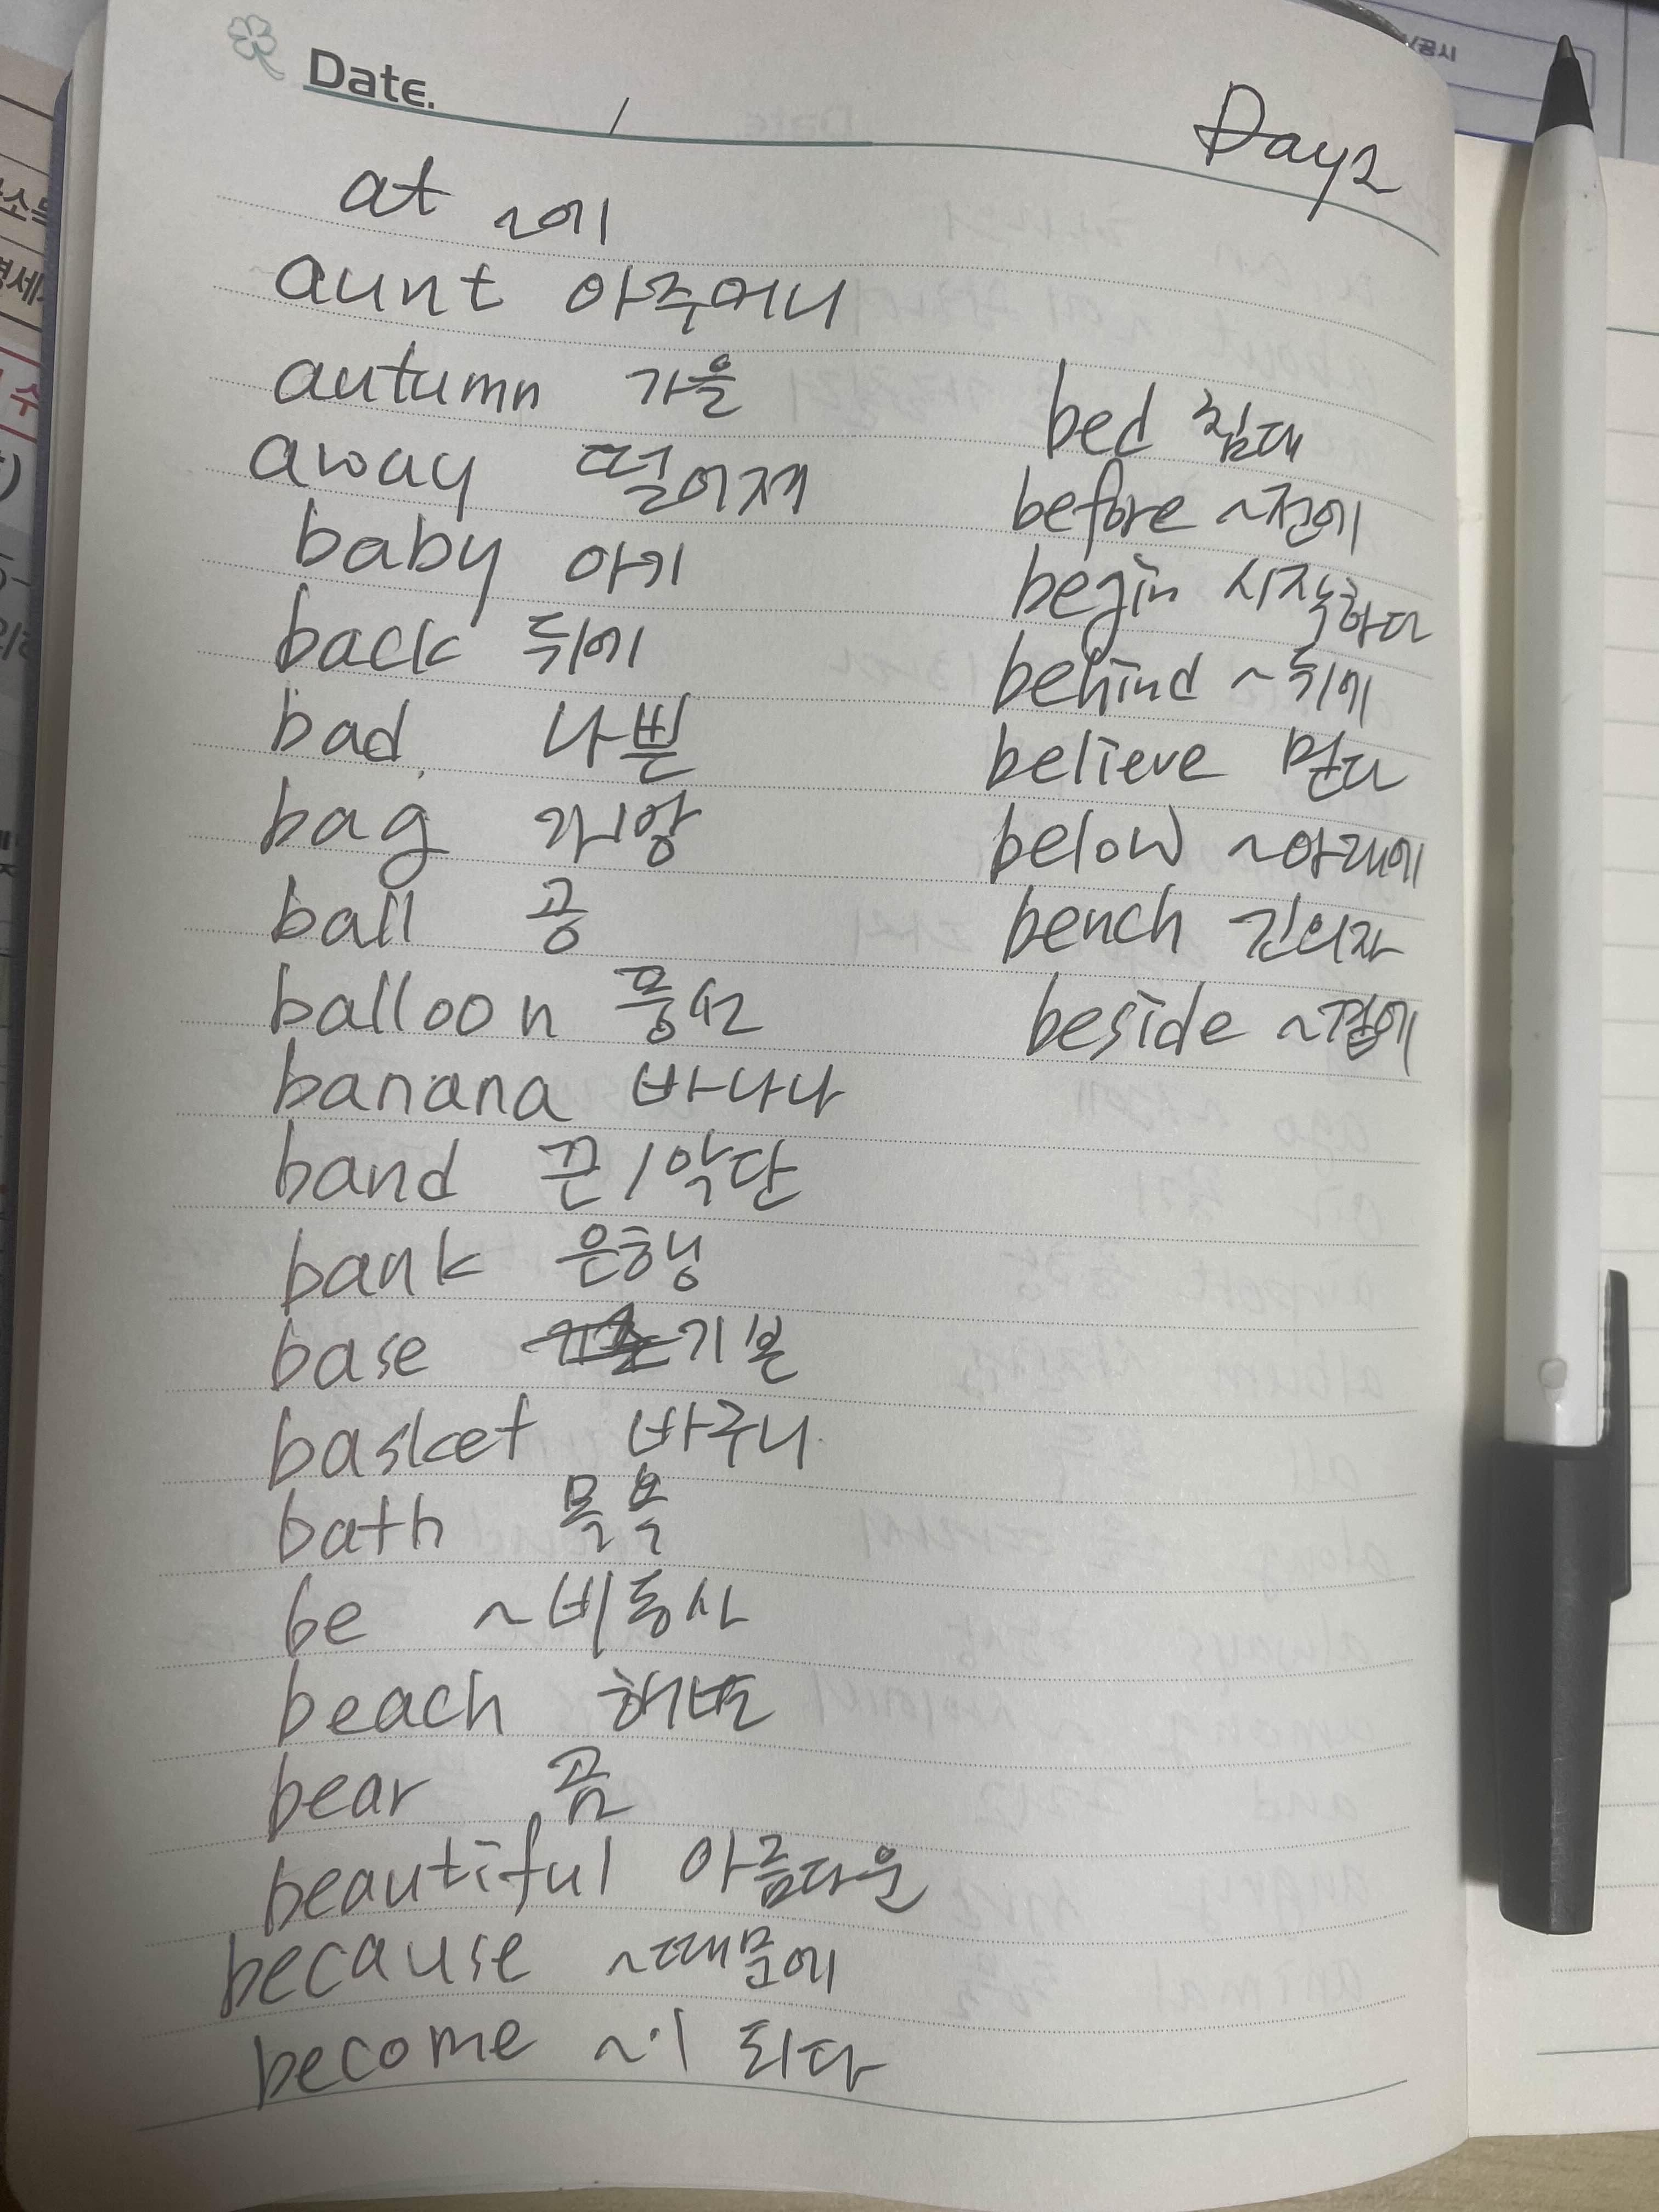 Date.
/
Day2
at ~에
aunt 아주머니
autumn 가을
away 떨어져
baby 아기
back 뒤에
bad 나쁜
bag 가방
ball 공
balloon 풍선
banana 바나나
band 끈/악단
bank 은행
base 기본
basket 바구니
bath 목욕
be ~비동사
beach 해변
bear 곰
beautiful 아름다운
because ~때문에
become ~이 되다
bed 침대
before ~전에
begin 시작하다
behind ~뒤에
believe 믿다
below ~아래에
bench 긴의자
beside ~곁에